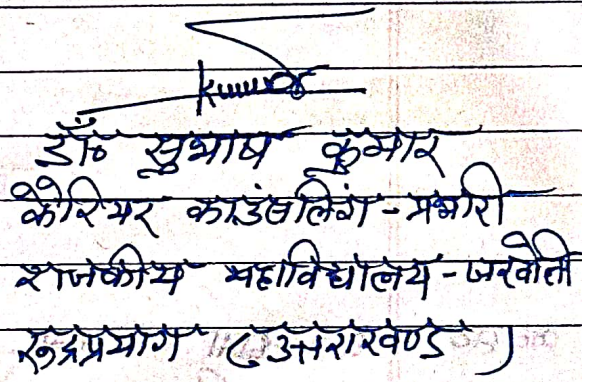 kumar
डॉ० सुभाष कुमार
कैरियर काउंसलिंग - प्रभारी
राजकीय महाविद्यालय - जखोली
रुद्रप्रयाग (उत्तराखण्ड)